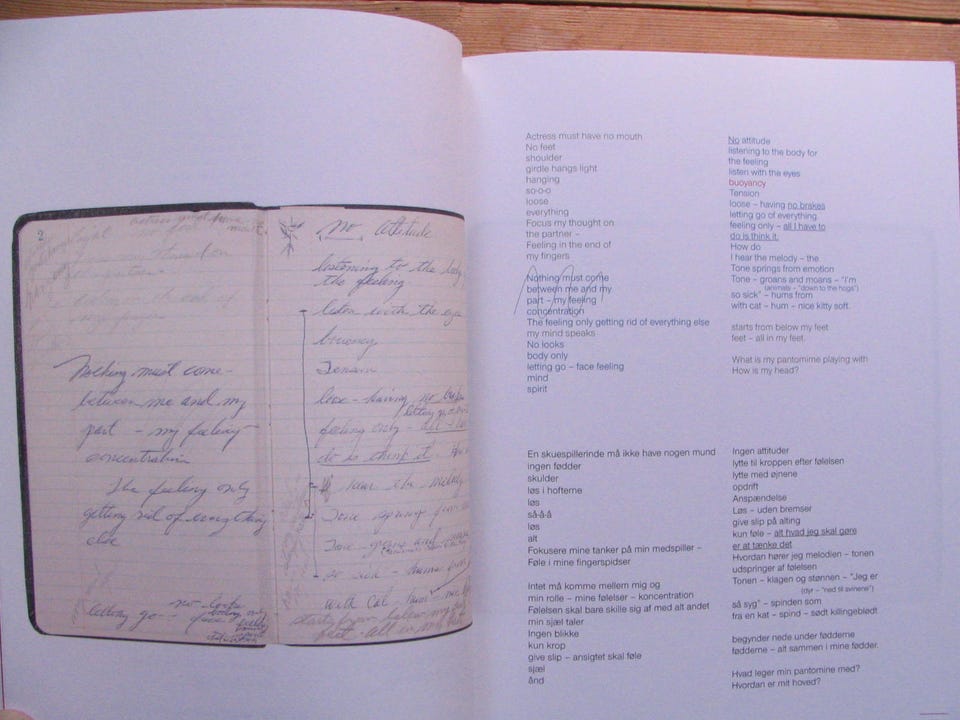 2
Nothing must come
between me and my
part – my feeling –
concentration
The feeling only
getting rid of everything
else
letting go – no looks
face
No attitude
listening to the body
the feeling
listen with the eyes
buoyancy
Tension
loose – having no brakes
letting go
feeling only – all I
do is think it.
hear the melody
Tone springs from
Tone – groans and
so sick – hums from
with cat – hum
starts from below my
feet – all in my
Actress must have no mouth
No feet
shoulder
girdle hangs light
hanging
so-o-o
loose
everything
Focus my thought on
the partner –
Feeling in the end of
my fingers
Nothing must come
between me and my
part – my feeling
concentration
The feeling only getting rid of everything else
my mind speaks
No looks
body only
letting go – face feeling
mind
spirit
No attitude
listening to the body for
the feeling
listen with the eyes
buoyancy
Tension
loose – having no brakes
letting go of everything.
feeling only – all I have to
do is think it.
How do
I hear the melody – the
Tone springs from emotion
Tone – groans and moans – "I'm
(animals – "down to the hogs")
so sick" – hums from
with cat – hum – nice kitty soft.
starts from below my feet
feet – all in my feet.
What is my pantomime playing with
How is my head?
En skuespillerinde må ikke have nogen mund
ingen fødder
skulder
løs i hofterne
løs
så-å-å
løs
alt
Fokusere mine tanker på min medspiller –
Føle i mine fingerspidser
Intet må komme mellem mig og
min rolle – mine følelser – koncentration
Følelsen skal bare skille sig af med alt andet
min sjæl taler
Ingen blikke
kun krop
give slip – ansigtet skal føle
sjæl
ånd
Ingen attituder
lytte til kroppen efter følelsen
lytte med øjnene
opdrift
Anspændelse
Løs – uden bremser
give slip på alting
kun føle – alt hvad jeg skal gøre
er at tænke det
Hvordan hører jeg melodien – tonen
udspringer af følelsen
Tonen – klagen og stønnen – "Jeg er
(dyr – "ned til svinene")
så syg" – spinden som
fra en kat – spind – sødt killingeblødt
begynder nede under fødderne
fødderne – alt sammen i mine fødder.
Hvad leger min pantomine med?
Hvordan er mit hoved?